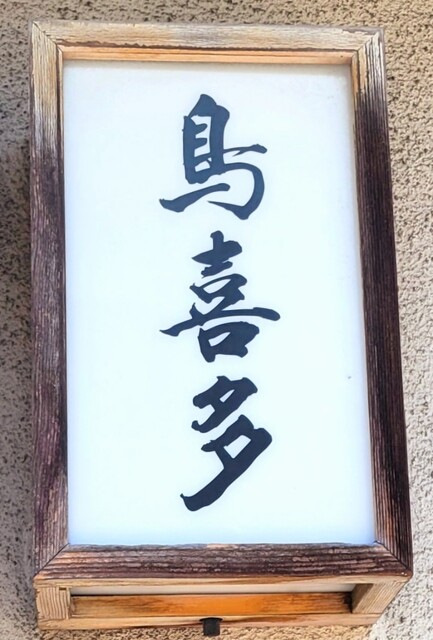 鳥喜多